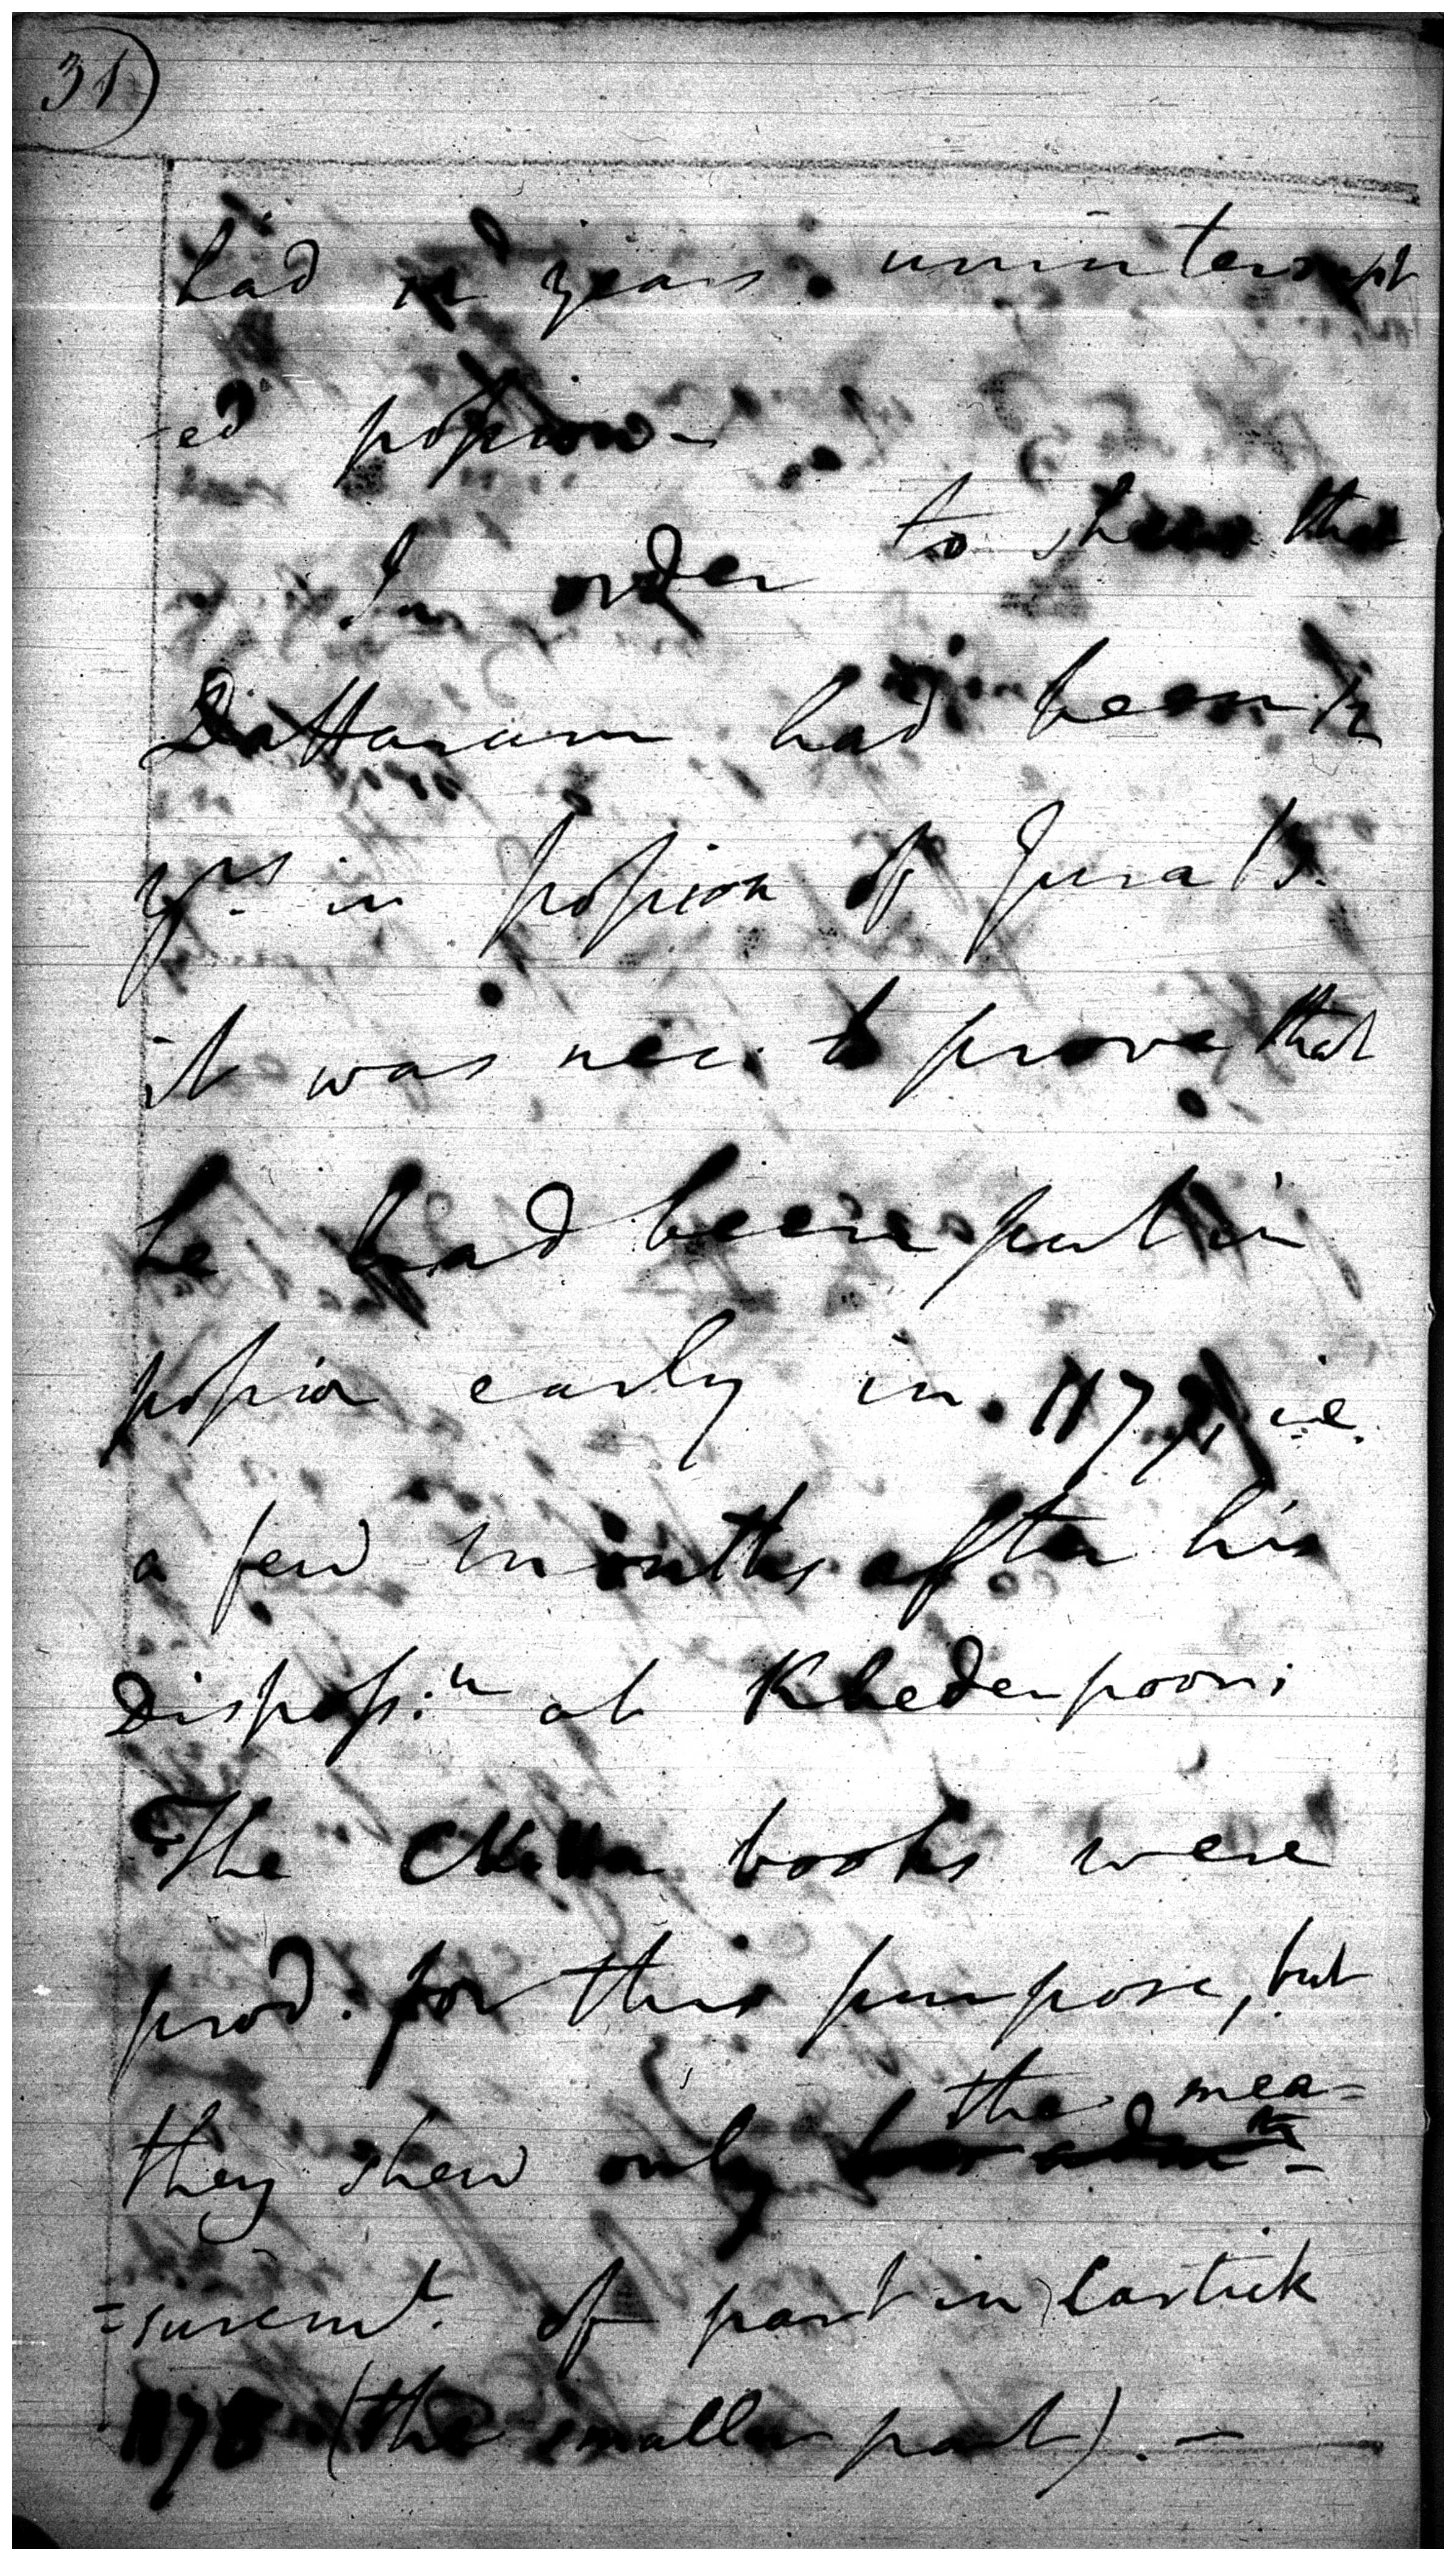 31
had 12 years uninterrupt
-ed possion -
In order to shew that
Dattaram had been 12
yrs. in possion of Jurat B.
it was nec. to prove that
he had been put in
possion early in 1177, i.e.
a few months after his
Disposs:n at Khederpoor;
The Chitta books were
prod. for this purpose, but
the mea=
they shew only
=suremt. of part in Cartick
1178 (the smaller part). -